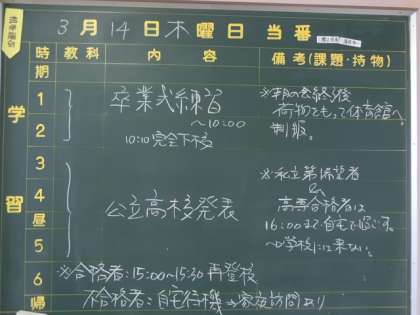 3月14日木曜日 当番
時期 教科 内容 備考(課題・持物)
学習
1
2
3
4
昼
5
6
帰
卒業式練習
~10:00
10:10 完全下校
※朝の会終了後
荷物をもって体育館へ
制服。
公立高校発表
※私立第一希望者
&
高専合格者は
16:00まで自宅で過ごす。
→学校に来ない。
※合格者:15:00~15:30 再登校
不合格者:自宅待機→家庭訪問あり